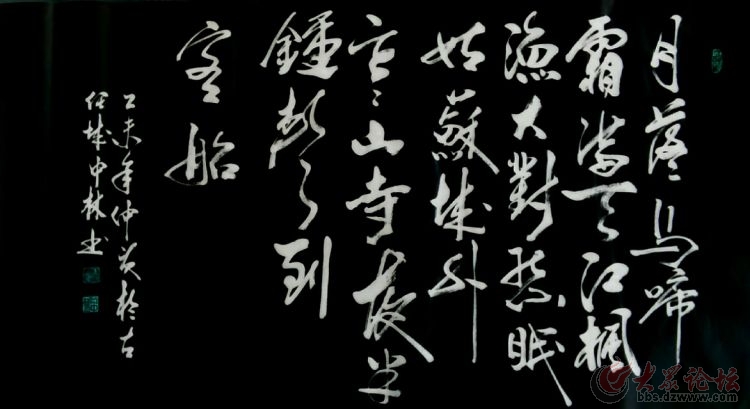 月落烏啼
霜滿天江楓
漁火對愁眠
姑蘇城外
寒山寺夜半
鍾聲到
客船
乙未年仲夏於古
任城中林书
大众论坛
bbs.dzwww.com